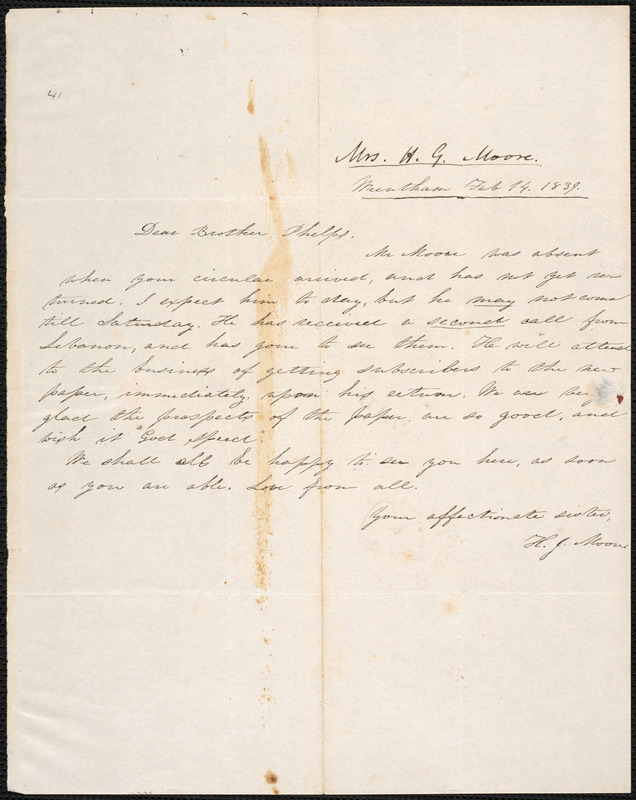 41
Mrs. H. G. Moore.
Wrentham Feb 14. 1839.
Dear Brother Phelps.
Mr Moore was absent
when your circular arrived, and has not yet re
turned. I expect him to day, but he may not come
till Saturday. He has received a second call from
Lebanon, and has gone to see them. He will attend
to the business of getting subscribers to the new
paper, immediately upon his return. We are very
glad the prospects of the paper are so good, and
wish it "God speed".
We shall all be happy to see you here, as soon
as you are able. Love from all.
Your affectionate sister,
H. G. Moore